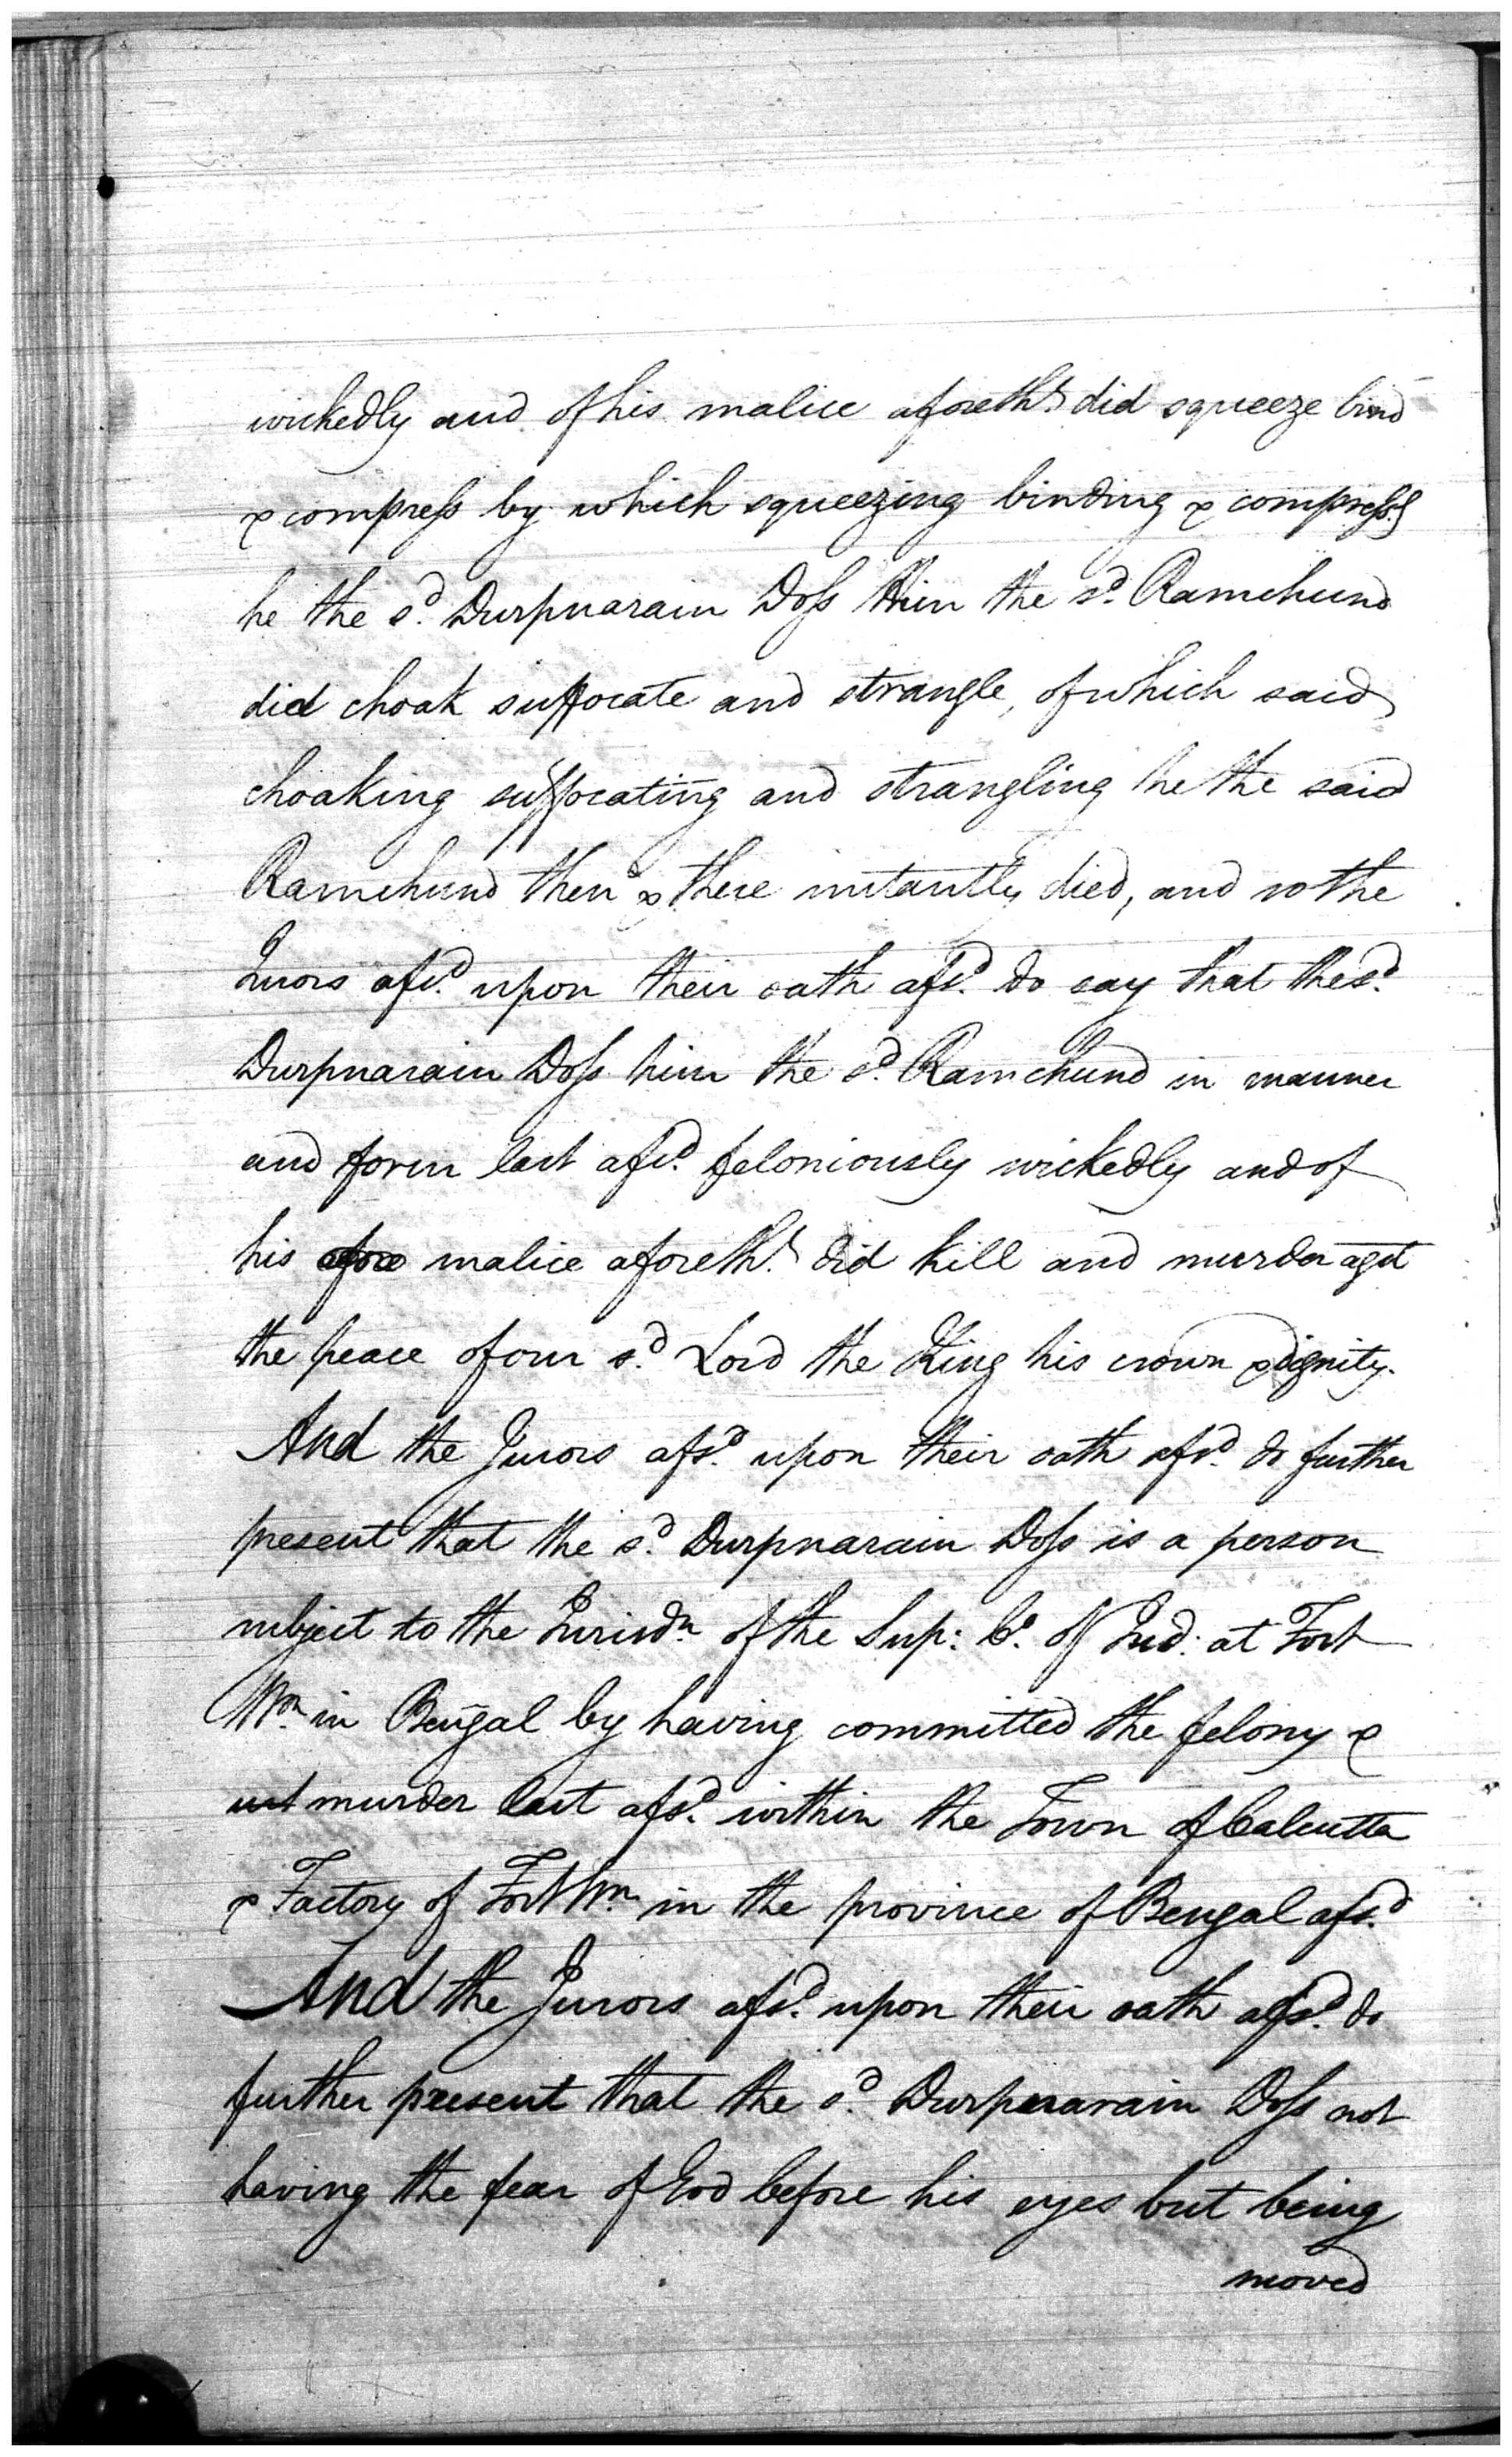 wickedly and of his malice aforeth.t did squeeze bind
& compress by which squeezing binding & compress.g
he the s.d Durpnarain Doss him the s.d Ramchund
did choak suffocate and strangle, of which said
choaking suffocating and strangling he the said
Ramchund then & there instantly died, and so the
Jurors afs.d upon their oath afs.d do say that the s.d
Durpnarain Doss him the s.d Ramchund in manner
and form last afs.d feloniously wickedly and of
his afore malice aforeth.t did kill and murder agst
the peace of our s.d Lord the King his crown & dignity.
And the Jurors afs.d upon their oath afs.d do further
present that the s.d Durpnarain Doss is a person
subject to the Jurisd.n of the Sup: C.t of Jud: at Fort
W.m in Bengal by having committed the felony &
murder last afs.d within the Town of Calcutta
& Factory of Fort W.m in the province of Bengal afs.d
And the Jurors afs.d upon their oath afs.d do
further present that the s.d Durpnarain Doss not
having the fear of God before his eyes but being
moved